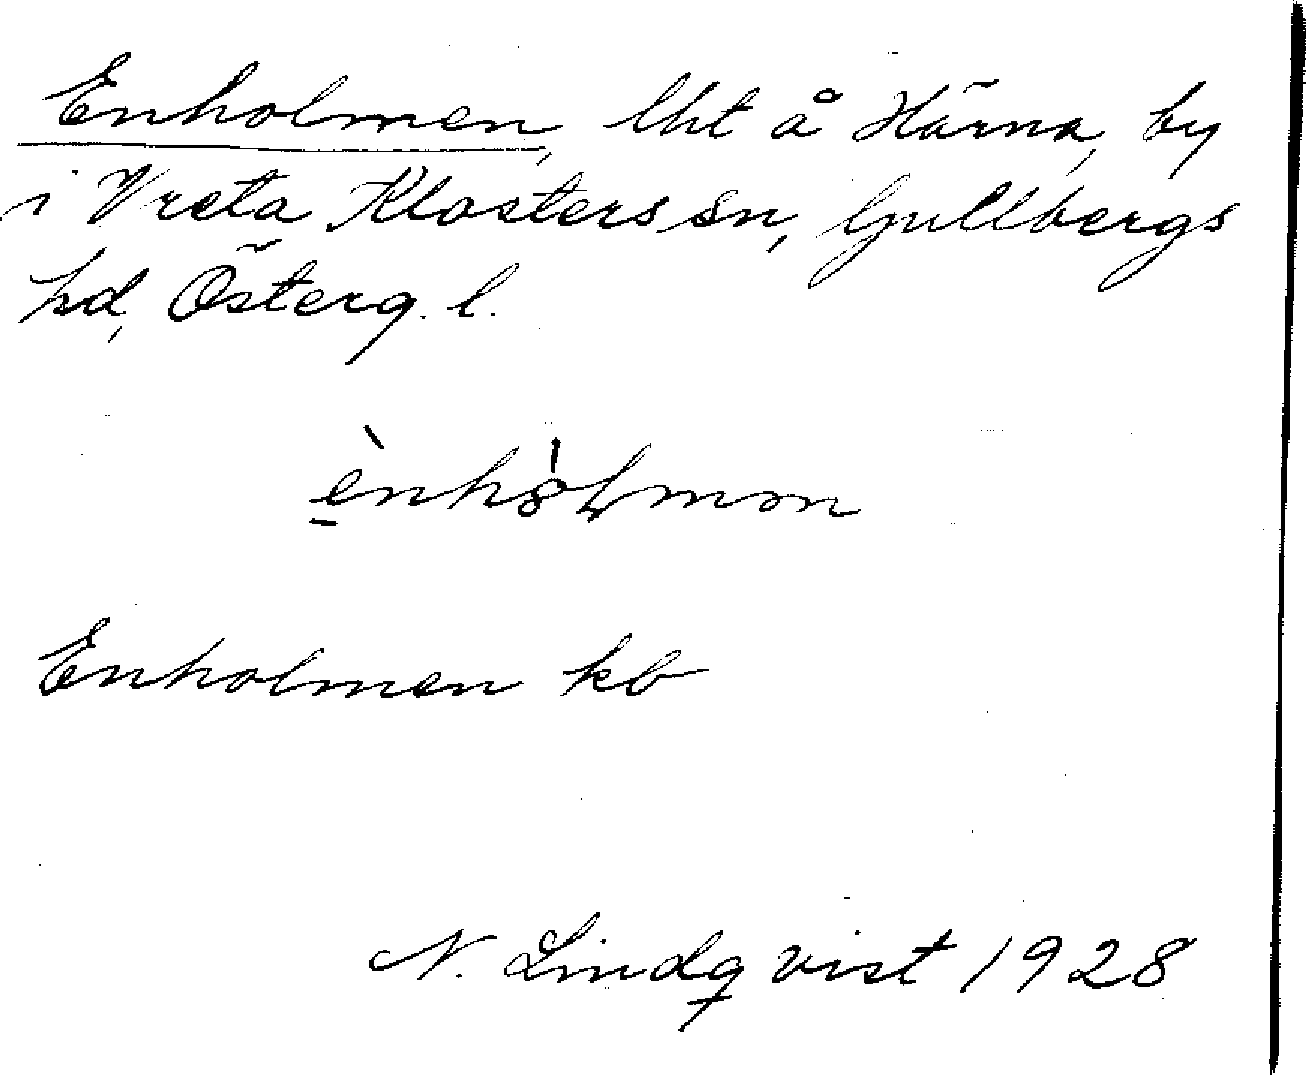 Enholmen, lht å Härna, by
i Vreta Klosters sn, Gullbergs
hd, Österg. l.
Enholmen kb
N. Lindqvist 1928